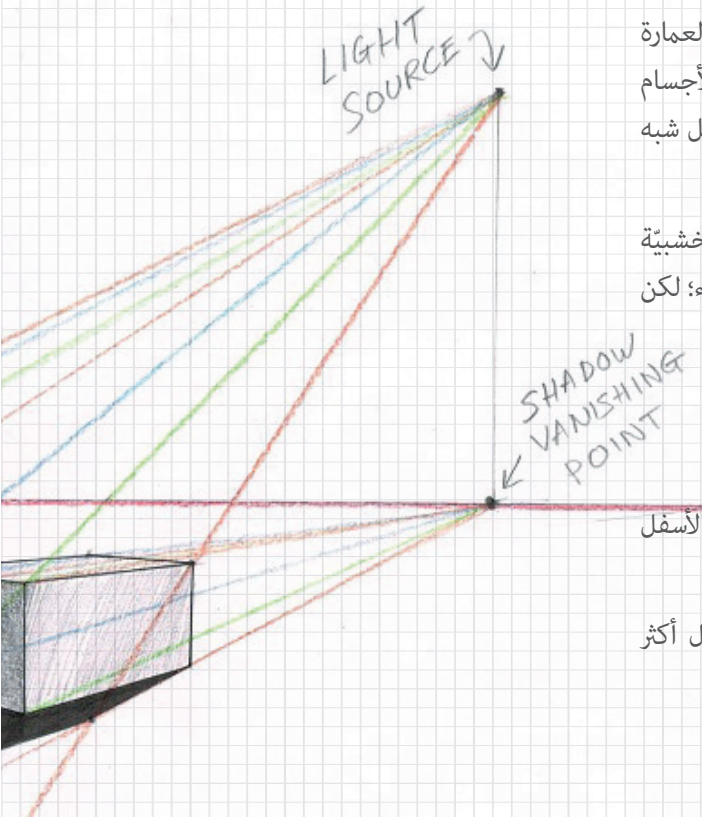 LIGHT
SOURCE
SHADOW
VANISHING
POINT
لعمارة
لأجسام
ل شبه
خشبيّة
ء؛ لكن
لأسفل
ل أكثر